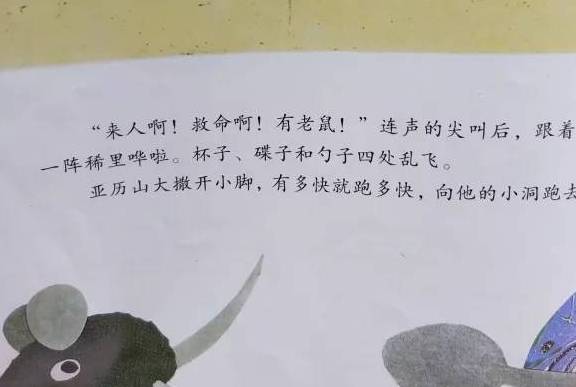 “来人啊！救命啊！有老鼠！”连声的尖叫后，跟着
一阵稀里哗啦。杯子、碟子和勺子四处乱飞。
亚历山大撒开小脚，有多快就跑多快，向他的小洞跑去